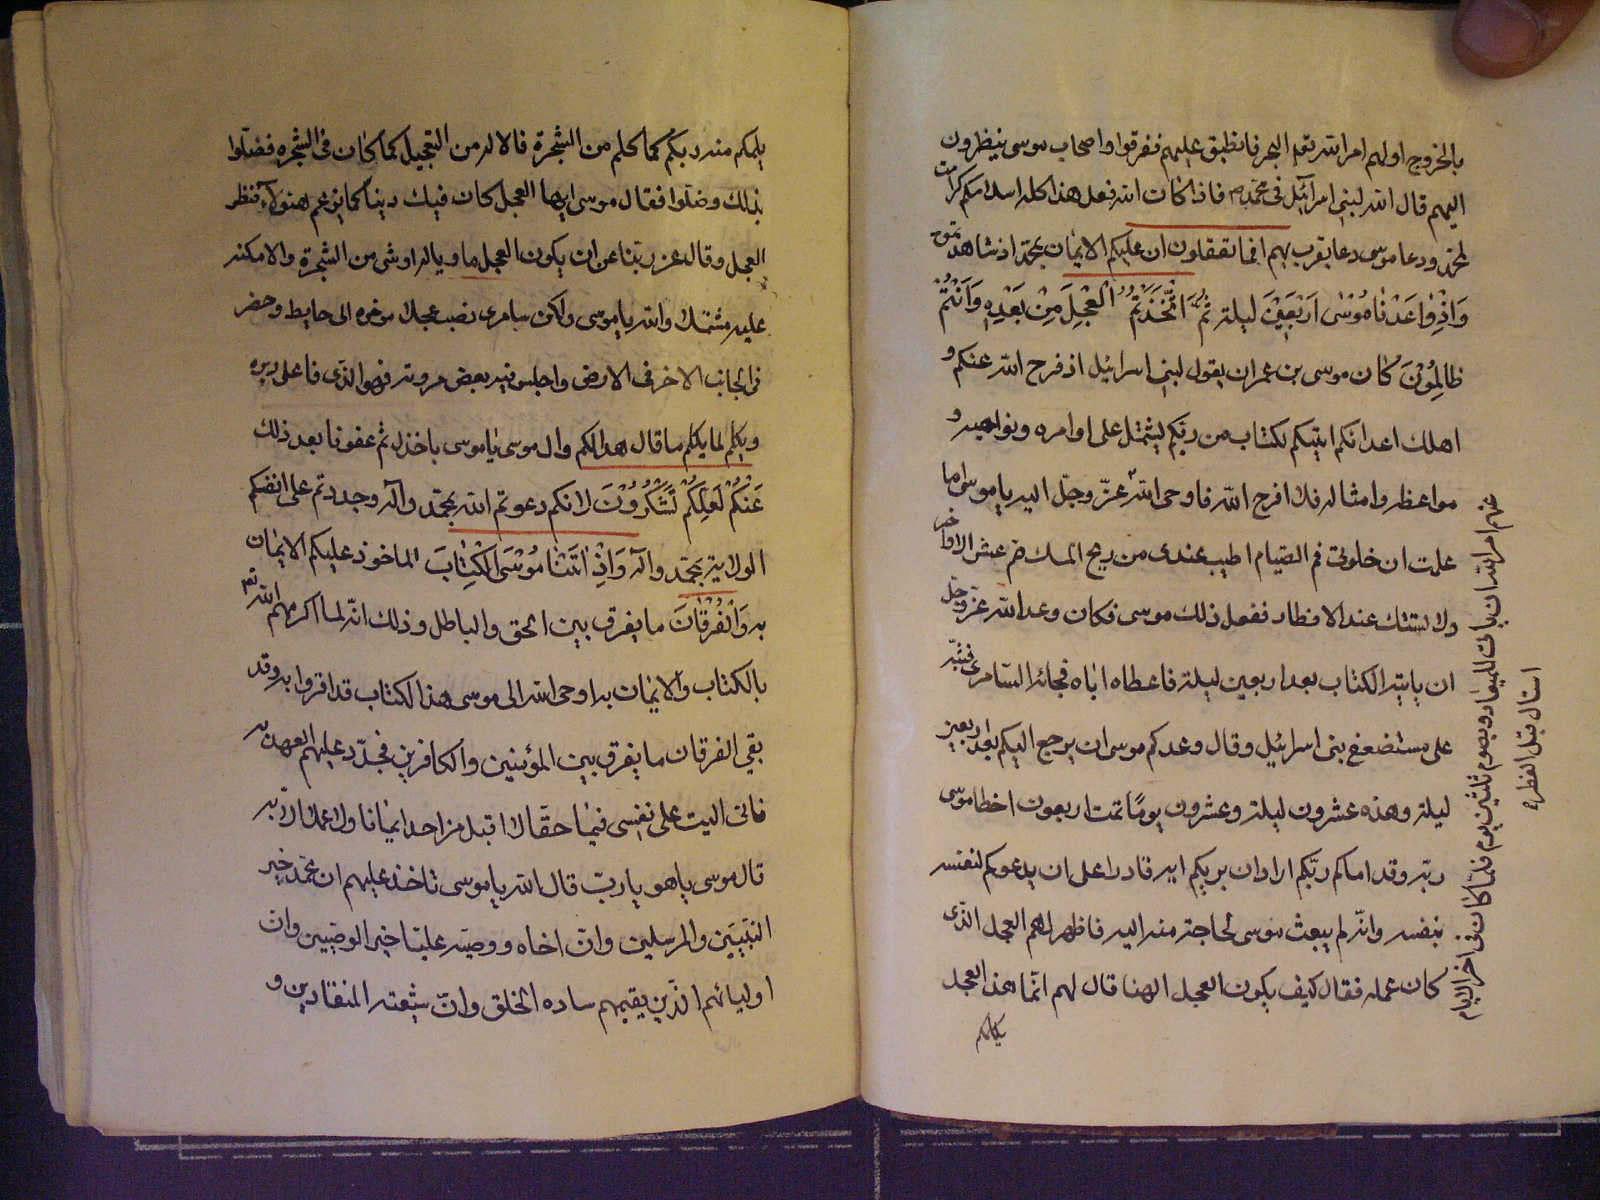 بالخروج اولهم امر الله تعم البحر فانطبق عليهم فغرقوا واصحاب موسى ينظرون
اليهم قال الله لبنى اسرائيل فى محمد ص فاذا كان الله فعل هذا كله اسلافكم كرامت
لمحمد ودعا موسى دعا يقرب بهم افما تعقلون ان عليكم الايمان بمحمد اذ شاهد تموه
وَاِذْ وٰاعَدْنٰا مُوْسٰى اَرْبَعِيْنَ ليلة ثُمَّ اتَّخَذْتُمُ الْعِجْلَ مِنْ بَعْدِهٖ وَاَنْتُمْ
ظالِمُوْنَ كان موسى بن عمران يقول لبنى اسرائيل اذ فرح الله عنكم و
اهلك اعدائكم ايتيكم بكتاب من ربّكم يشتمل على اوامره ونواهيه و
مواعظه وامثاله فلما فرج الله فاوحى الله عزّ وجلّ اليه يا موسى اما
علمت ان خلوق فم الصّيام اطيب عندى من ريح المسك صم عشر الاواخر
ولا تستك عند الافطار ففعل ذلك موسى فكان وعد الله عزّ وجلّ
ان ياتيه الكتاب بعد اربعين ليلة فاعطاه اياه فجائه السّامرى فشبّه
على مستضعفى بنى اسرائيل وقال وعدكم موسى ان يرجع اليكم بعد اربعين
ليلة وهذه عشرون ليلة وعشرون يومًا تمت اربعون اخطا موسى
ربّه وقد اماكم ربّكم اراد ان يريكم ايه قادرا على ان يدعوكم لنفسه
بنفسه وانّه لم يبعث موسى لحاجة منه اليه فاظهر لهم العجل الّذى
كان عمله فقال كيف يكون العجل الهنا قال لهم انّما هذا العجل
يكلمكم
عنهم امر الله ان ياتى للميعاد ويصوم ثلثين يوم فلمّا كان فى اخر الايام
استاك قبل الفطره
يكلمكم منه ربكم كما كلم من الشجرة فالاله من العجيل كما كان فى الشجره فضلّوا
بذلك وضلّوا فقال موسى ايها العجل كان فيك ربنا كما يزعم هؤلاء فنظر
العجل وقال عز ربّنا عن ان يكون العجل ما ويا له او شى من الشجرة والامكنه
عليه مشتملا والله يا موسى ولكن سامرى نصب عجلا موخره الى حايط وحفر
فى الجانب الاخر فى الارض واجلس فيه بعض مردته فهو الذى فا على دبره
ويكلم لما يكلم ما قال هذا الكم وال موسى يا موسى باخذل ثم عفونا بعد ذلك
عَنْكُمْ لَعَلَّكُمْ تَشْكُرُوْنَ لانكم دعوتم الله بمحمّد وآله وجددتم على انفسكم
الولاية بمحمّد وآله وَاِذْ اٰتَيْنا مُوْسَى الْكِتٰابَ الماخوذ عليكم الايمان
به وَالْفُرْقٰانَ ما يفرق بين الحق والباطل وذلك انّه لما اكرمهم الله تعم
بالكتاب والايمان به اوحى الله الى موسى هذا الكتاب قد اقروا به وقد
بقى الفرقان ما يفرق بين المؤمنين والكافرين فجدّد عليهم العهد به
فانى اليت على نفسى فيما حقّا لا اقبل من احد ايمانا ولا عملا الا به
قال موسى ياهو يا ربّ قال الله يا موسى تاخذ عليهم ان محمّد خير
النبيين والمرسلين وانّ اخاه ووصيّه عليّا خير الوصيين وان
اوليائهم الّذين يقيمهم ساده الخلق وانّ شيعته المنقادين و